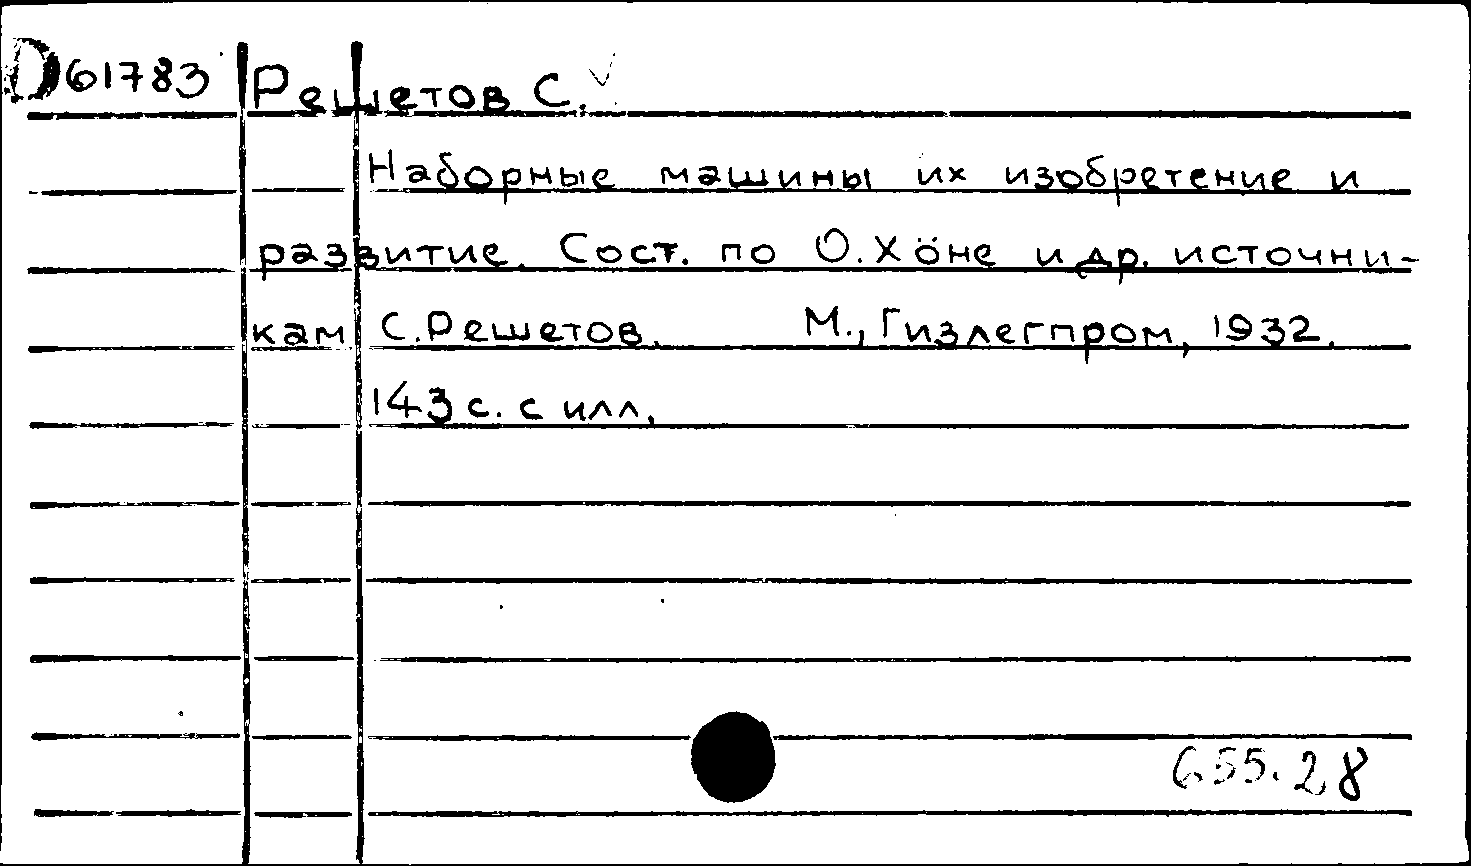 D61783 Решетов С.
Наборные машины их изобретение и
развитие. Сост. по О. Хöне и др. источни-
кам С. Решетов. М., Гизлегпром, 1932.
143 с. с илл.
655.28